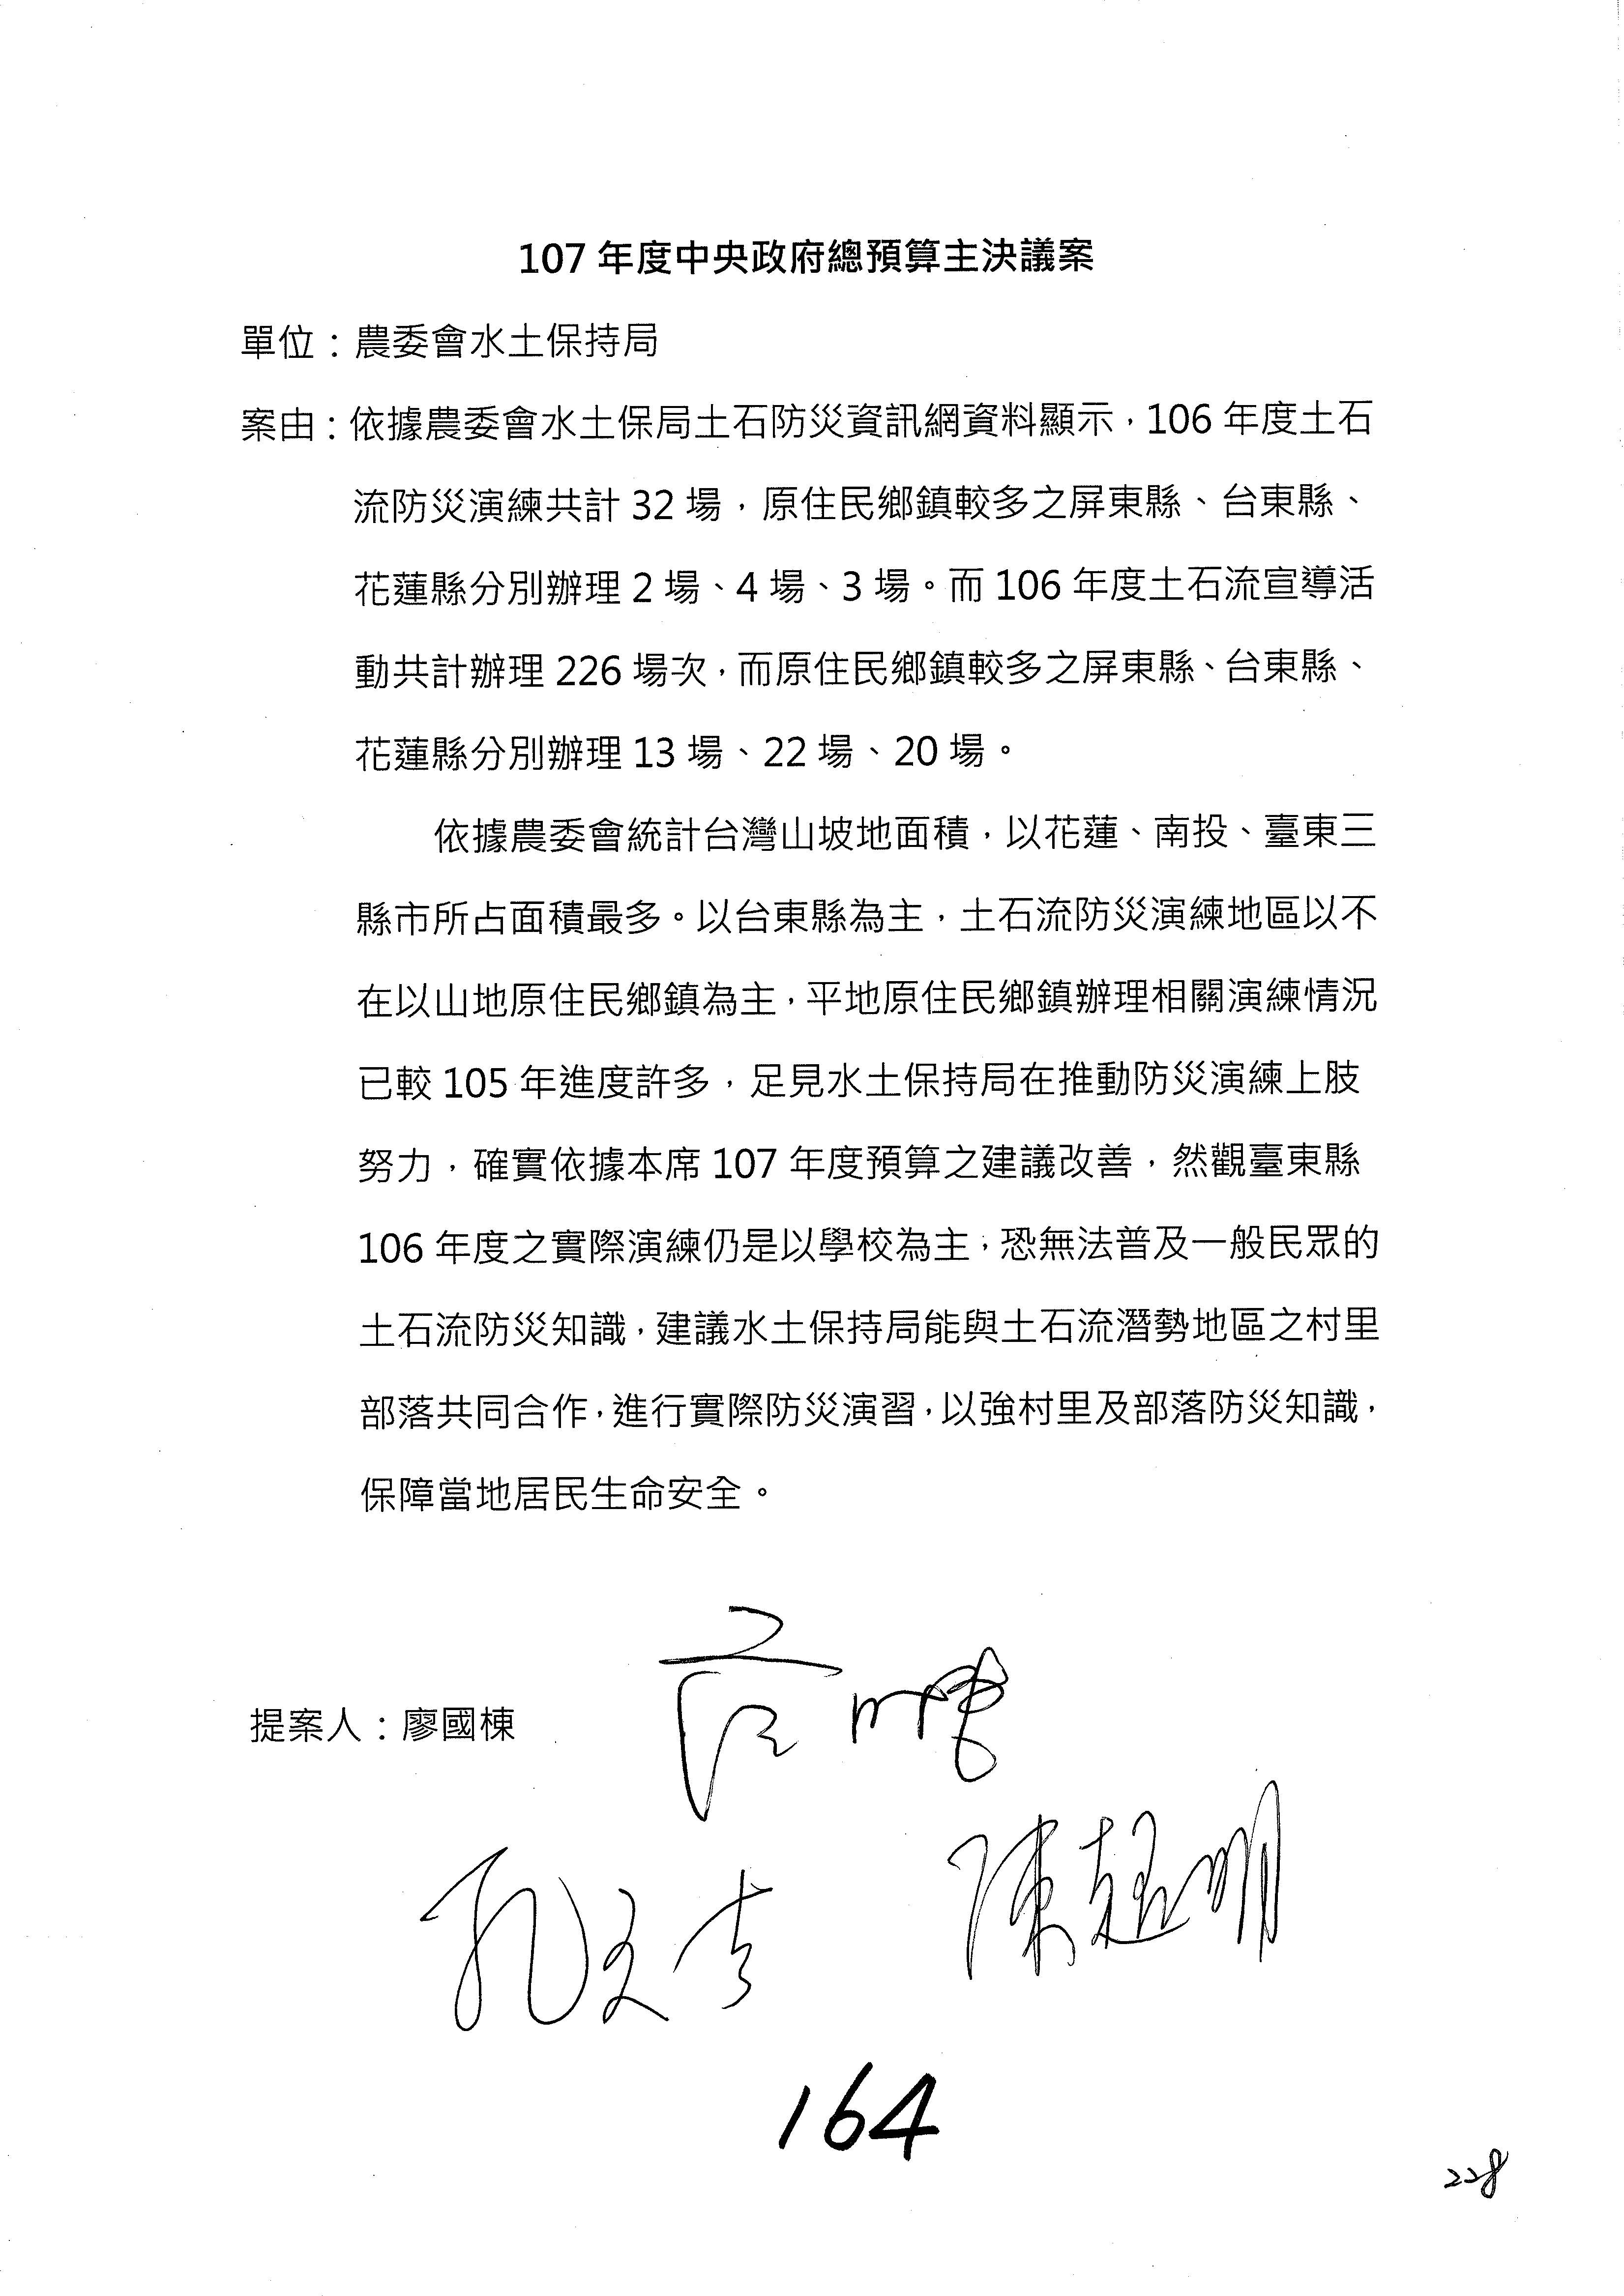 107 年度中央政府總預算主決議案
單位：農委會水土保持局
案由：依據農委會水土保局土石防災資訊網資料顯示，106 年度土石
流防災演練共計 32 場，原住民鄉鎮較多之屏東縣、台東縣、
花蓮縣分別辦理 2 場、4 場、3 場。而 106 年度土石流宣導活
動共計辦理 226 場次，而原住民鄉鎮較多之屏東縣、台東縣、
花蓮縣分別辦理 13 場、22 場、20 場。
依據農委會統計台灣山坡地面積，以花蓮、南投、臺東三
縣市所占面積最多。以台東縣為主，土石流防災演練地區以不
在以山地原住民鄉鎮為主，平地原住民鄉鎮辦理相關演練情況
已較 105 年進度許多，足見水土保持局在推動防災演練上肢
努力，確實依據本席 107 年度預算之建議改善，然觀臺東縣
106 年度之實際演練仍是以學校為主，恐無法普及一般民眾的
土石流防災知識，建議水土保持局能與土石流潛勢地區之村里
部落共同合作，進行實際防災演習，以強村里及部落防災知識，
保障當地居民生命安全。
提案人：廖國棟
孔文吉
陳超明
164
228